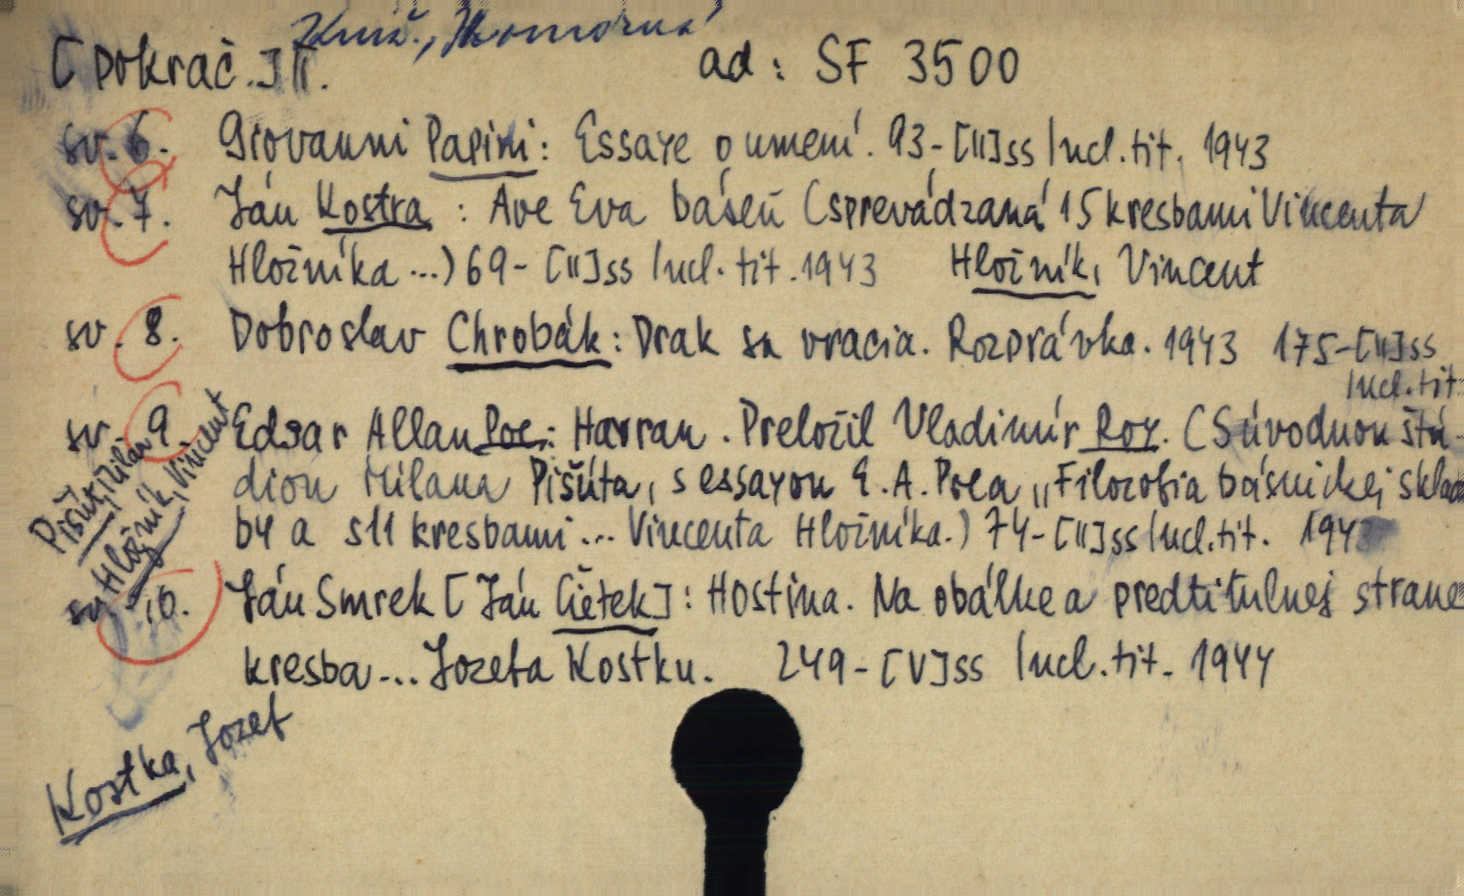 Kniž., Komorná
[pokrač.] II. ad: SF 3500
sv. 6. Giovanni Papini: Essaye o umení. 93-[II]ss Incl. tit. 1943
sv. 7. Ján Kostra: Ave Eva báseň (sprevádzaná 15 kresbami Vincenta
Hložníka ...) 69-[II]ss Incl. tit. 1943 Hložník, Vincent
sv. 8. Dobroslav Chrobák: Drak sa vracia. Rozprávka. 1943 175-[II]ss
Incl. tit.
sv. 9. Edgar Allan Poe: Havran. Preložil Vladimír Roy. (S úvodnou štú-
diou Milana Pišúta, s essayou E. A. Poea „Filozofia básnickej sklad
by a s 11 kresbami ... Vincenta Hložníka.) 74-[II]ss Incl. tit. 1943
Pišút, Milan
Hložník, Vincent
sv. 10. Ján Smrek [Ján Čietek]: Hostina. Na obálke a predtitulnej strane
kresba ... Jozefa Kostku. 249-[V]ss Incl. tit. 1944
Kostka, Jozef